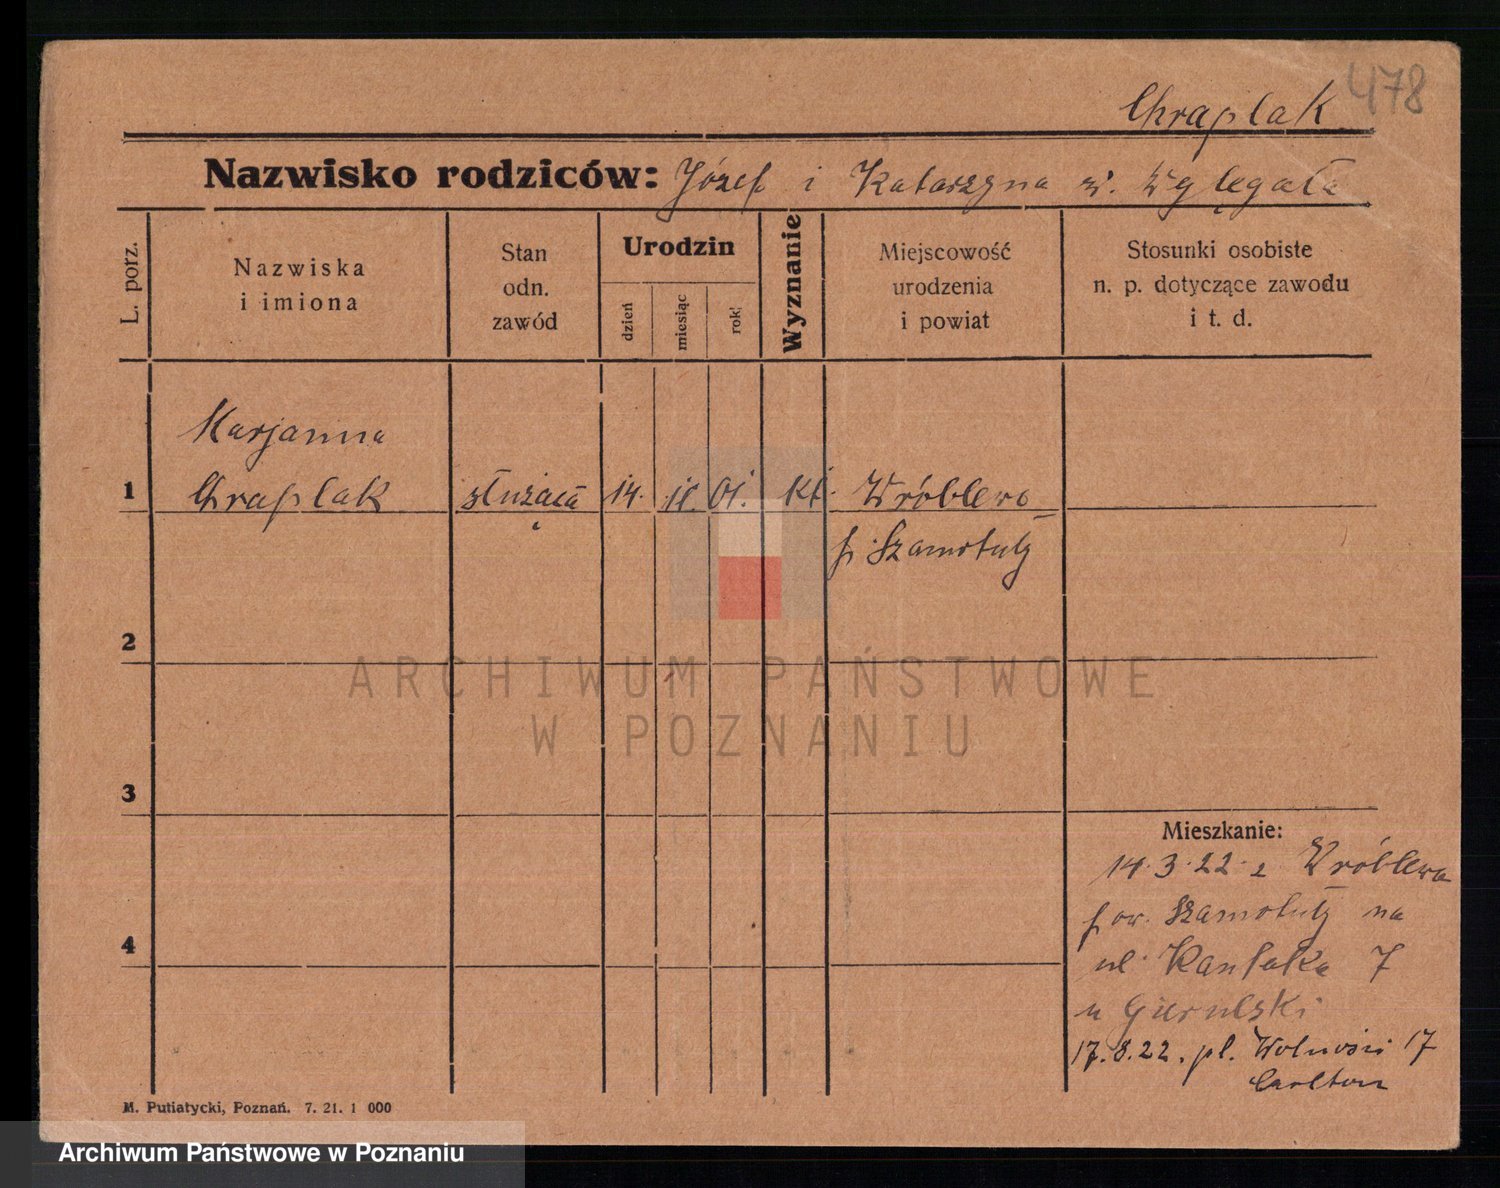 478
Chraplak
Nazwisko rodziców: Józef i Katarzyna w. Wylęgała
L. porz.
Nazwiska
i imiona
Stan
odn.
zawód
Urodzin
dzień
miesiąc
rok
Wyznanie
Miejscowość
urodzenia
i powiat
Stosunki osobiste
n. p. dotyczące zawodu
i t. d.
Marjanna
1 Chraplak służąca 14. 11. 01. kt. Wróblewo
p. Szamotuły
2
ARCHIWUM PAŃSTWOWE
W POZNANIU
3
Mieszkanie:
14.3.22 z Wróblewa
4
pow. Szamotuły na
ul. Kantaka 7
u
17.8.22. pl. Wolności 17
Carlton
M. Putiatycki, Poznań. 7. 21. 1 000
Archiwum Państwowe w Poznaniu